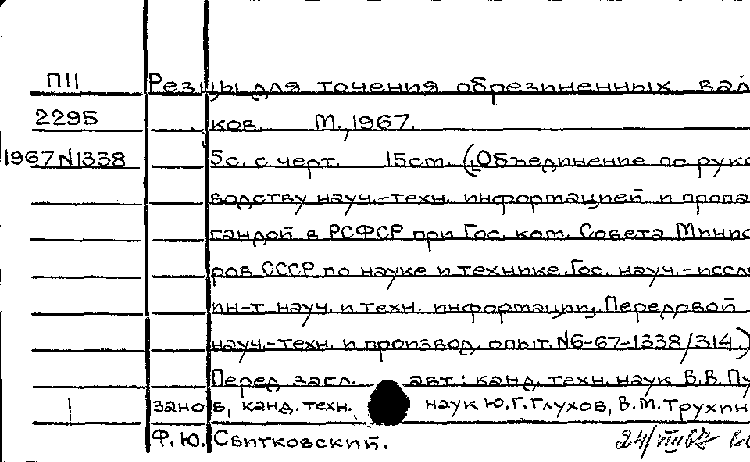 П11 Резцы для точения обрезиненных вал
2295 ков. М., 1967.
1967 N1338 5с. с черт. 15см. (Объединение по руко
водству науч.-техн. информацией и пропа
гандой в РСФСР при Гос. ком. Совета Минис
ров СССР по науке и технике. Гос. науч.-иссл
ин-т науч. и техн. информации. Передовой
науч.-техн. и производ. опыт. N6-67-1338/314.)
Перед загл. авт.: канд. техн. наук В.В. Пу
занов, канд. техн. наук Ю.Г. Глухов, В.М. Трухин
Ф.Ю. Свитковский.